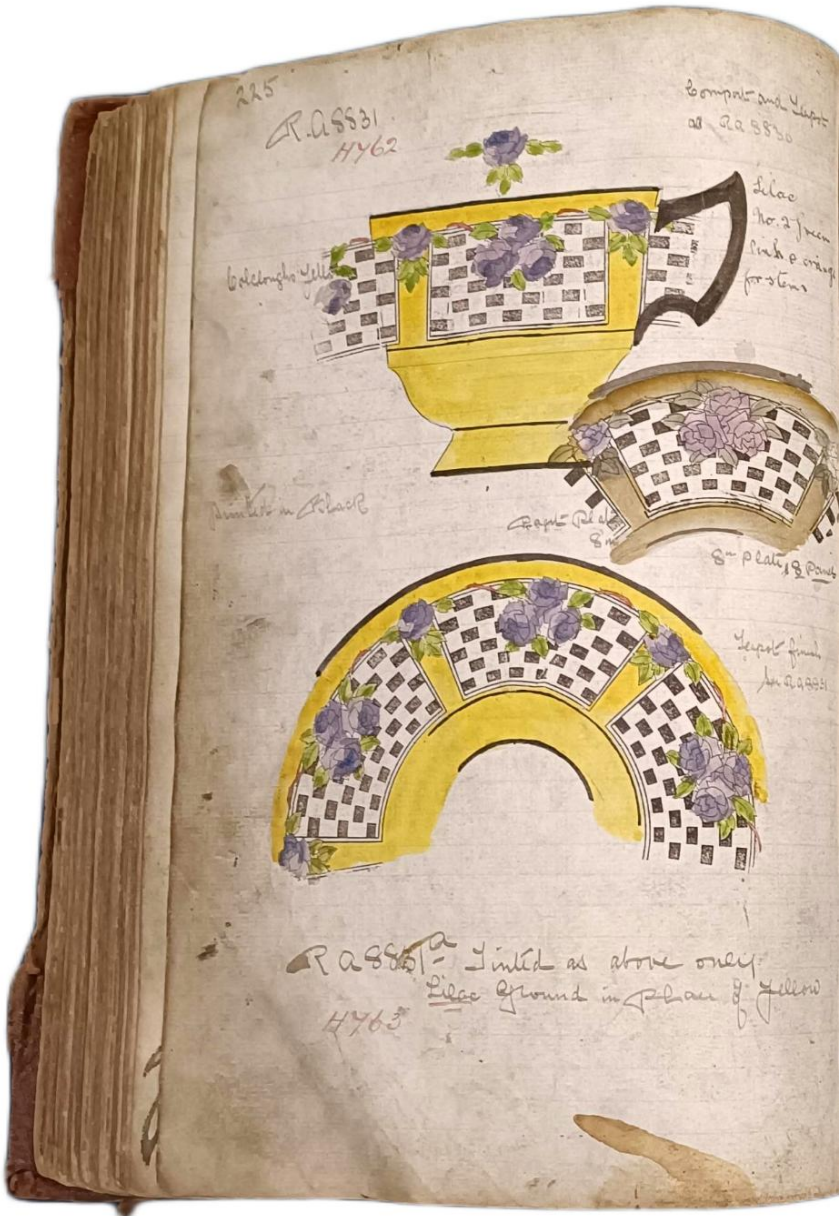 225
R.A 8831.
H762
Compart and Teapot
as RA 8830
Lilac
No. 2 Green
Pink & orange
for stems
Colcloughs Yello
Printed in Black
Plate
8 in
8 in Plate, 8 Panels
Teapot finish
RA 8831
RA 8831 a Tinted as above only
Lilac Ground in place of Yellow
H763